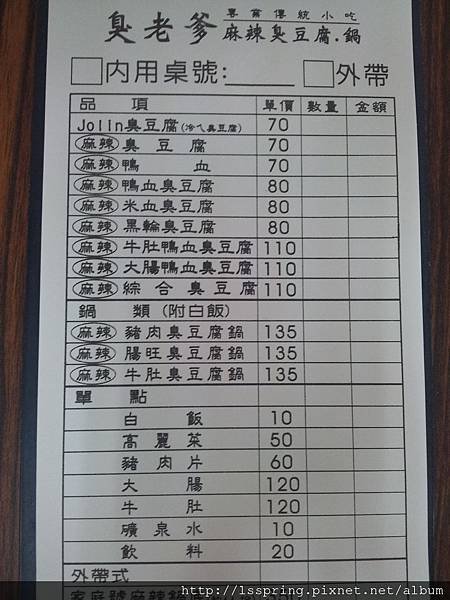 專業傳統小吃
臭老爹 麻辣臭豆腐.鍋
內用桌號: 外帶
品項 單價 數量 金額
Jolin臭豆腐(冷ㄟ臭豆腐) 70
麻辣 臭豆腐 70
麻辣 鴨血 70
麻辣 鴨血臭豆腐 80
麻辣 米血臭豆腐 80
麻辣 黑輪臭豆腐 80
麻辣 牛肚鴨血臭豆腐 110
麻辣 大腸鴨血臭豆腐 110
麻辣 綜合臭豆腐 110
鍋類(附白飯)
麻辣 豬肉臭豆腐鍋 135
麻辣 腸旺臭豆腐鍋 135
麻辣 牛肚臭豆腐鍋 135
單點
白飯 10
高麗菜 50
豬肉片 60
大腸 120
牛肚 120
礦泉水 10
飲料 20
外帶式
家庭號麻辣鍋
http://lsspring.pixnet.net/album